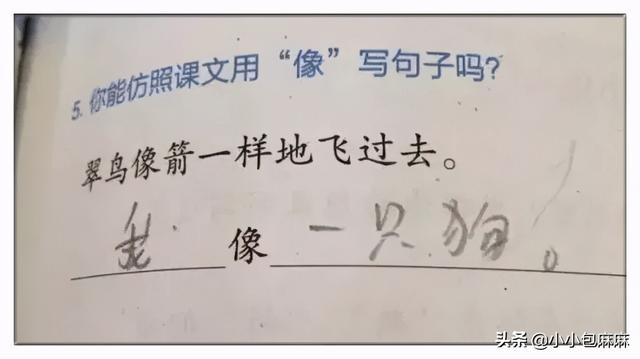 5. 你能仿照课文用“像”写句子吗?
翠鸟像箭一样地飞过去。
我像一只狗。
头条 @小小包麻麻